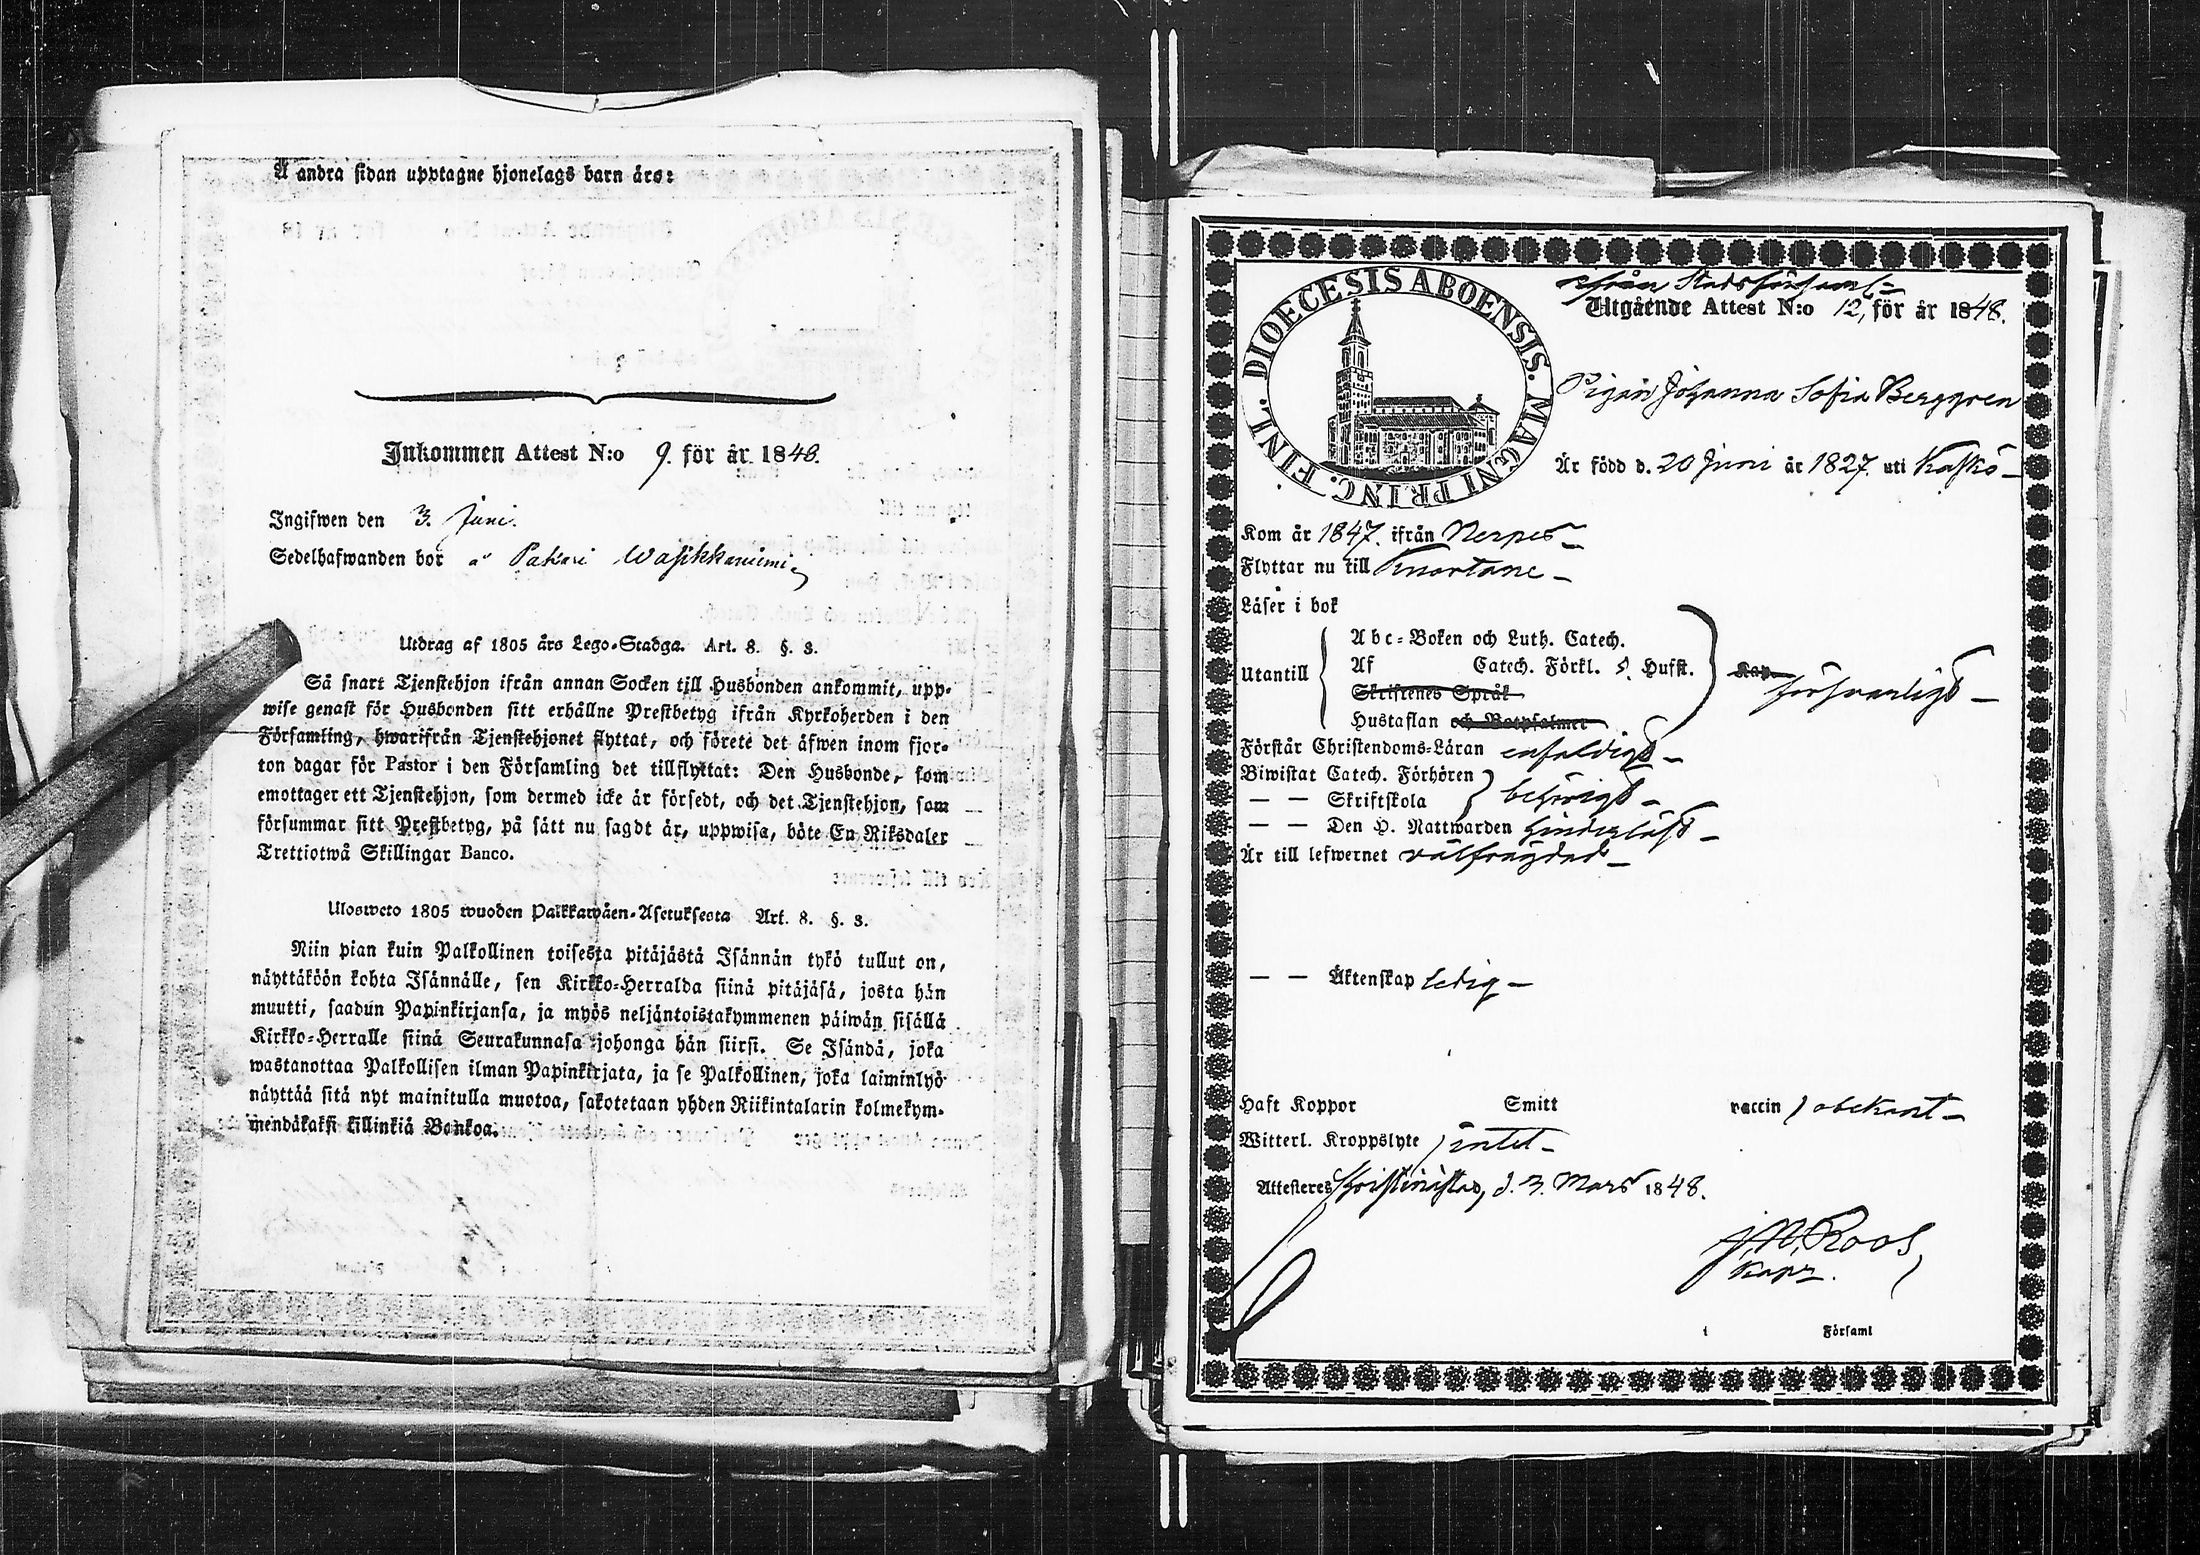 Å andra sidan upptagne hjonelags barn äro:
Inkommen Attest N:o 9. för år 1848.
Ingifwen den 3. Juni.
Sedelhafwanden bor å Pakari Wasikkaniemi
Utdrag af 1805 års Lego-Stadga. Art. 8. §. 3.
Så snart Tjenstehjon ifrån annan Socken till Husbonden ankommit, upp-
wise genast för Husbonden sitt erhållne Prestbetyg ifrån Kyrkoherden i den
Församling, hwarifrån Tjenstehjonet flyttat, och förete det äfwen inom fjor-
ton dagar för Pastor i den Församling det tillflyttat: Den Husbonde, som
emottager ett Tjenstehjon, som dermed icke är försedt, och det Tjenstehjon, som
försummar sitt Prestbetyg, på sätt nu sagdt är, uppwisa, böte En Riksdaler
Trettiotwå Skillingar Banco.
Ulosweto 1805 wuoden Palkkawäen-Asetuksesta Art. 8. §. 3.
Niin pian kuin Palkollinen toisesta pitäjästä Isännän tykö tullut on,
näyttäköön kohta Isännälle, sen Kirkko-Herralda siinä pitäjäsä, josta hän
muutti, saadun Papinkirjansa, ja myös neljäntoistakymmenen päiwän sisällä
Kirkko-Herralle siinä Seurakunnasa johonga hän siirsi. Se Isändä, joka
wastanottaa Palkollisen ilman Papinkirjata, ja se Palkollinen, joka laiminlyö
näyttää sitä nyt mainitulla muotoa, sakotetaan yhden Riikintalarin kolmekym-
mendäkaksi killinkiä Bankoa.
DIOECESIS ABOENSIS. MAGNI PRINC. FINL.
ifrån Stadsförsaml.
Utgående Attest N:o 12, för år 1848.
Pigan Johanna Sofia Berggren
Är född d. 20 Juni år 1827. uti Kaskö
Kom år 1847. ifrån Nerpes
Flyttar nu till Kuortane
Läser i bok
Utantill
Abc-Boken och Luth. Catech.
Af Catech. Förkl. 5. Hufst.
Skriftenes Språk
Hustaflan och Botpsalmer
Kap.
försvarligt
Förstår Christendoms-Läran enfaldigt
Biwistat Catech. Förhören
— — Skriftskola
behörigt
— — Den H. Nattwarden hinderlöst
Är till lefwernet välfrägdad
— — Äktenskap ledig
Haft Koppor Smitt vaccin obekant
Witterl. Kroppslyte intet
Attesteres Kristinestad, d. 3. Mars 1848.
J. M. Roos
Kapz.
i Församl